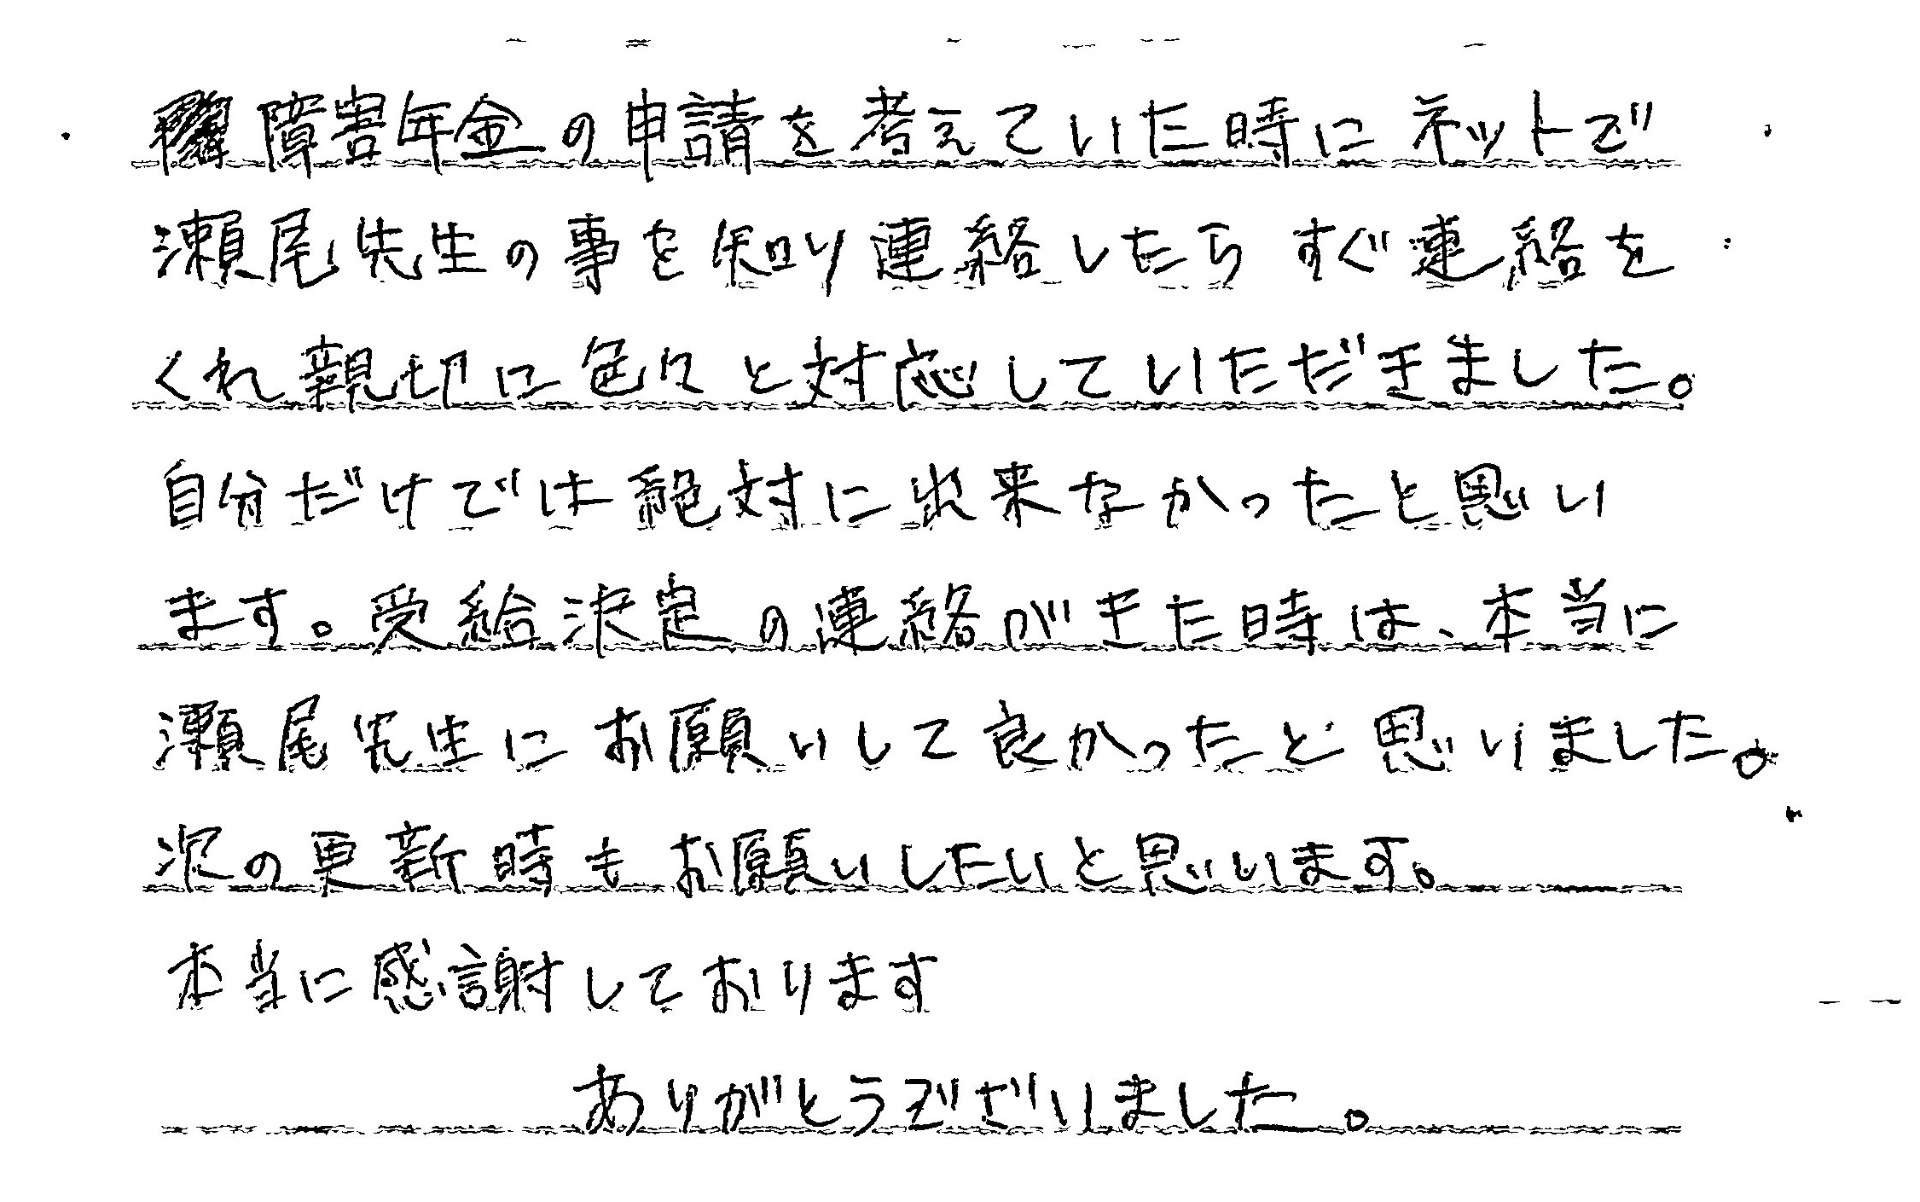 障害年金の申請を考えていた時にネットで
瀬尾先生の事を知り連絡したらすぐ連絡を
くれ親切に色々と対応していただきました。
自分だけでは絶対に出来なかったと思い
ます。受給決定の連絡がきた時は、本当に
瀬尾先生にお願いして良かったと思いました。
次の更新時もお願いしたいと思います。
本当に感謝しております
ありがとうございました。